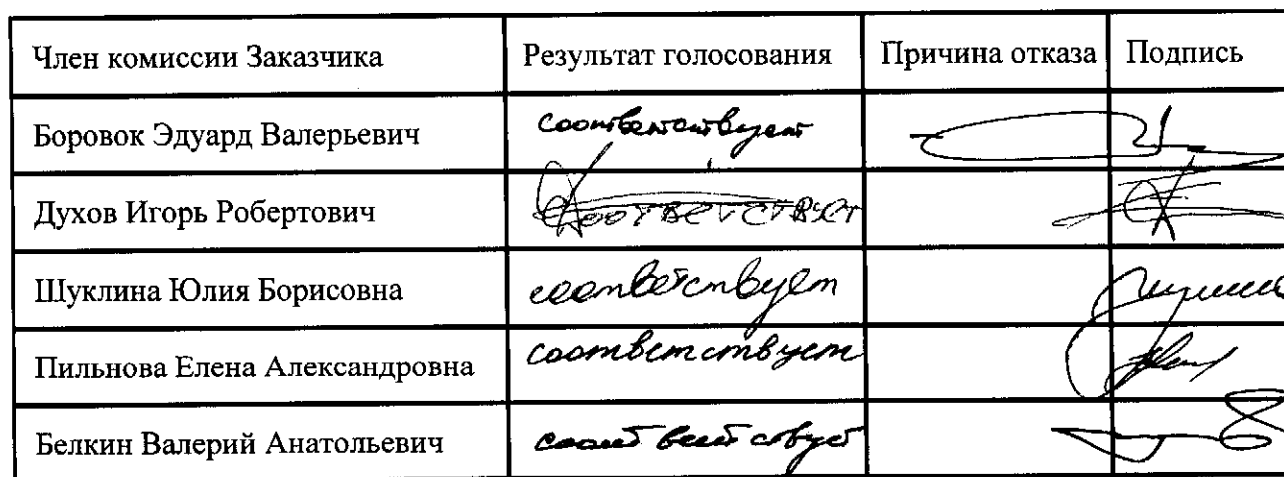 Член комиссии Заказчика Результат голосования Причина отказа Подпись
Боровок Эдуард Валерьевич соответствует
Духов Игорь Робертович соответствует
Шуклина Юлия Борисовна соответствует
Пильнова Елена Александровна соответствует
Белкин Валерий Анатольевич соответствует